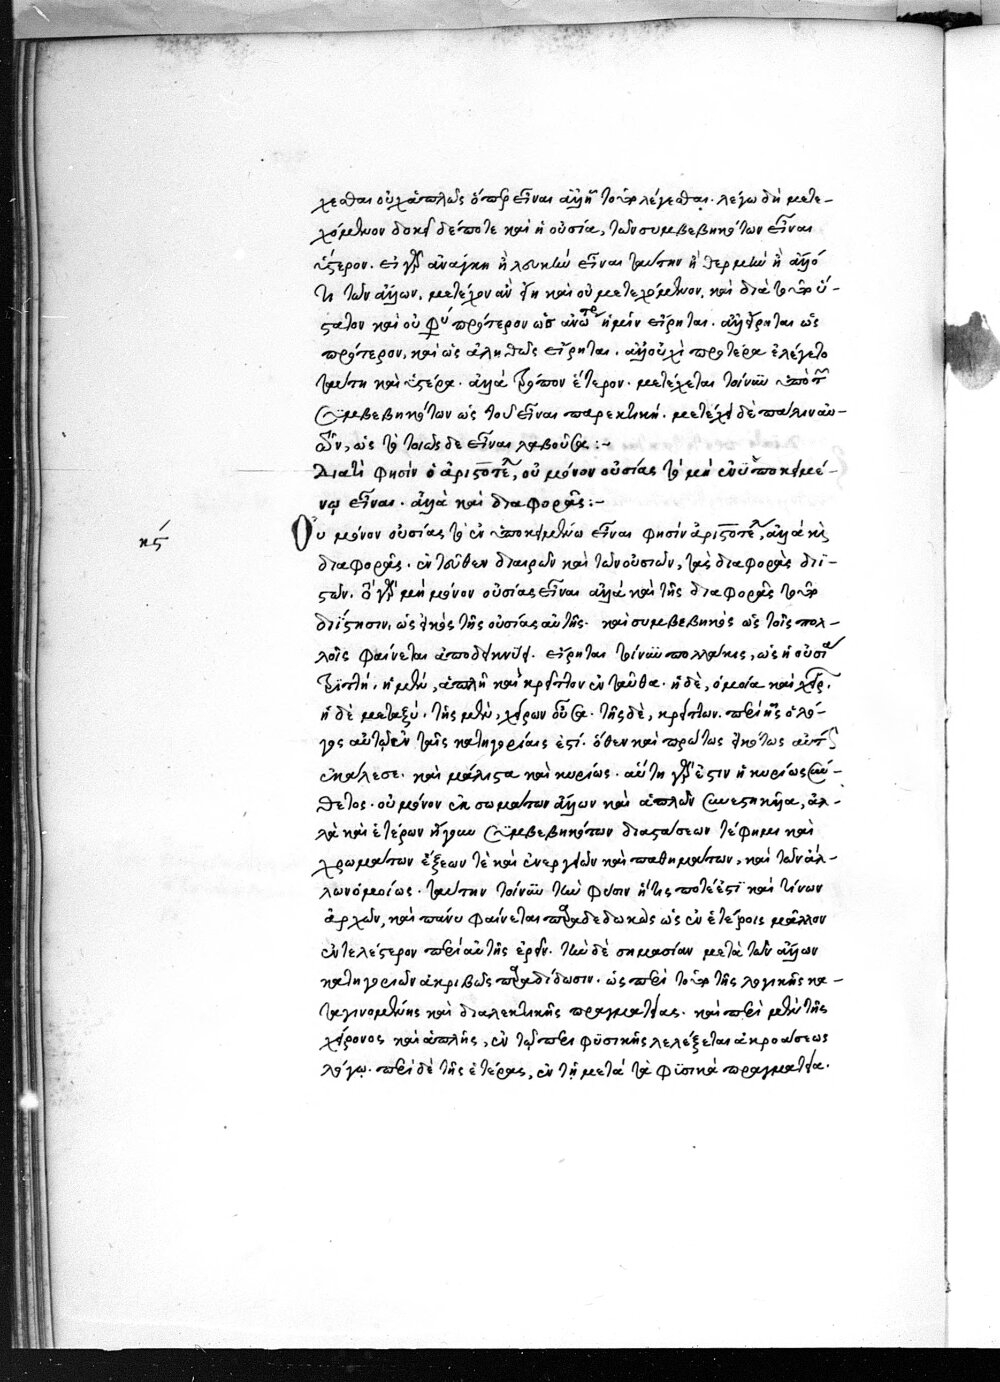 χεσθαι οὐχ ἁπλῶς ὅπερ εἶναι ἀλλὴ τοῦ λέγεσθαι. λέγω δὴ μετε-
χόμενον δοκεῖ δέ ποτε καὶ ἡ οὐσία, τῶν συμβεβηκότων εἶναι
ὕστερον. εἰ γὰρ ἀνάγκη ἢ λευκὴν εἶναι ταύτην ἢ θερμὴν ἢ ἄλλό
τι τῶν ἄλλων, μετέχον ἂν εἴη καὶ οὐ μετεχόμενον. καὶ διὰ τοῦ ὕ-
στατον καὶ οὐ πρότερον ὡς ἀνωτέρω ἡμῖν εἴρηται. ἀλλ' εἴρηται ὡς
πρότερον, καὶ ὡς ἀληθῶς εἴρηται. ἀλλ' οὐχὶ προτέρα ἐλέγετο
ταύτη καὶ ὑστέρα. ἀλλὰ τρόπον ἕτερον. μετέχεται τοίνυν ὑπὸ τῶν
συμβεβηκότων ὡς τοῦ εἶναι παρεκτική. μετέχει δὲ πάλιν αὐ-
τῶν, ὡς τὸ τοιῶσδε εἶναι λαβοῦσα :-
Διατί φησὶν ὁ ἀριστοτέλης, οὐ μόνον οὐσίας τὸ μὴ ἐν ὑποκειμέ-
νῳ εἶναι. ἀλλὰ καὶ διαφορᾶς :-
κϛ
Οὐ μόνον οὐσίας τὸ ἐν ὑποκειμένω εἶναι φησὶν ἀριστοτέλης, ἀλλὰ καὶ
διαφορᾶς. ἐντεῦθεν διαιρῶν καὶ τῶν οὐσιῶν, τὰς διαφορὰς δεί-
ξων. ὃ γὰρ μὴ μόνον οὐσίας εἶναι ἀλλὰ καὶ τῆς διαφορᾶς τοῦ
διΐστησιν, ὡς εἰκὸς τῆς οὐσίας αὐτῆς. καὶ συμβεβηκὸς ὡς τοῖς πολ-
λοῖς φαίνεται ἀποδεικνύει. εἴρηται τοίνυν πολλάκις, ὡς ἡ οὐσία
τριττή. ἡ μὲν, ἁπλῆ καὶ κρείττον ἐνταῦθα. ἡ δὲ, ὁμοία καὶ χείρ.
ἡ δὲ μεταξύ. τῆς μὲν, χείρων οὖσα. τῆς δὲ, κρείττων. περὶ ἧς ὁ λό-
γος αὐτῷ ἐν ταῖς κατηγορίαις ἐστί. ὅθεν καὶ πρώτως εἰκότως αὐτὴν
ἐκάλεσε. καὶ μάλιστα καὶ κυρίως. αὕτη γάρ ἐστιν ἡ κυρίως σύν-
θετος. οὐ μόνον ἐκ σωμάτων ἄλλων καὶ ἁπλῶν συνεστηκῦια, ἀλ-
λὰ καὶ ἑτέρων ἤγουν συμβεβηκότων διαστάσεων τέ φημι καὶ
χρωμάτων ἕξεων τὲ καὶ ἐνεργειῶν καὶ παθημάτων, καὶ τῶν ἄλ-
λων ὁμοίως. ταύτην τοίνυν τὴν φύσιν ἥτις ποτέ ἐστὶ καὶ τίνων
ἀρχῶν, καὶ πάνυ φαίνεται παραδεδωκὼς ὡς ἐν ἑτέροις μᾶλλον
ἐντελέστερον περὶ αὐτῆς ἐρεῖν. τὴν δὲ σημασίαν μετὰ τῶν ἄλλων
κατηγοριῶν ἀκριβῶς παραδίδωσιν. ὡς περὶ τοῦ τῆς λογικῆς κα-
ταγινομένης καὶ διαλεκτικῆς πραγματείας. καὶ περὶ μὲν τῆς
χείρονος καὶ ἁπλῆς, ἐν τῷ περὶ φυσικῆς λελέξεται ἀκροάσεως
λόγῳ. περὶ δὲ τῆς ἑτέρας, ἐν τῇ μετὰ τὰ φυσικὰ πραγματεία.